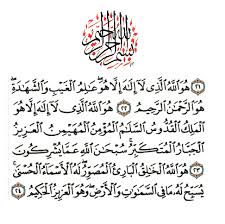 بِسْمِ اللَّهِ الرَّحْمَٰنِ الرَّحِيمِ
٢١ هُوَ اللَّهُ الَّذِي لَا إِلَٰهَ إِلَّا هُوَ عَٰلِمُ الْغَيْبِ وَالشَّهَٰدَةِ
هُوَ الرَّحْمَٰنُ الرَّحِيمُ ٢٢ هُوَ اللَّهُ الَّذِي لَا إِلَٰهَ إِلَّا هُوَ
الْمَلِكُ الْقُدُّوسُ السَّلَٰمُ الْمُؤْمِنُ الْمُهَيْمِنُ الْعَزِيزُ
الْجَبَّارُ الْمُتَكَبِّرُ سُبْحَٰنَ اللَّهِ عَمَّا يُشْرِكُونَ
٢٣ هُوَ اللَّهُ الْخَٰلِقُ الْبَارِئُ الْمُصَوِّرُ لَهُ الْأَسْمَاءُ الْحُسْنَىٰ
يُسَبِّحُ لَهُ مَا فِي السَّمَٰوَٰتِ وَالْأَرْضِ وَهُوَ الْعَزِيزُ الْحَكِيمُ ٢٤